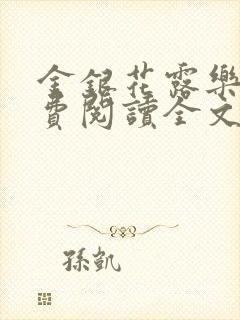 金銀花露樂
費閱讀全文
孫凱